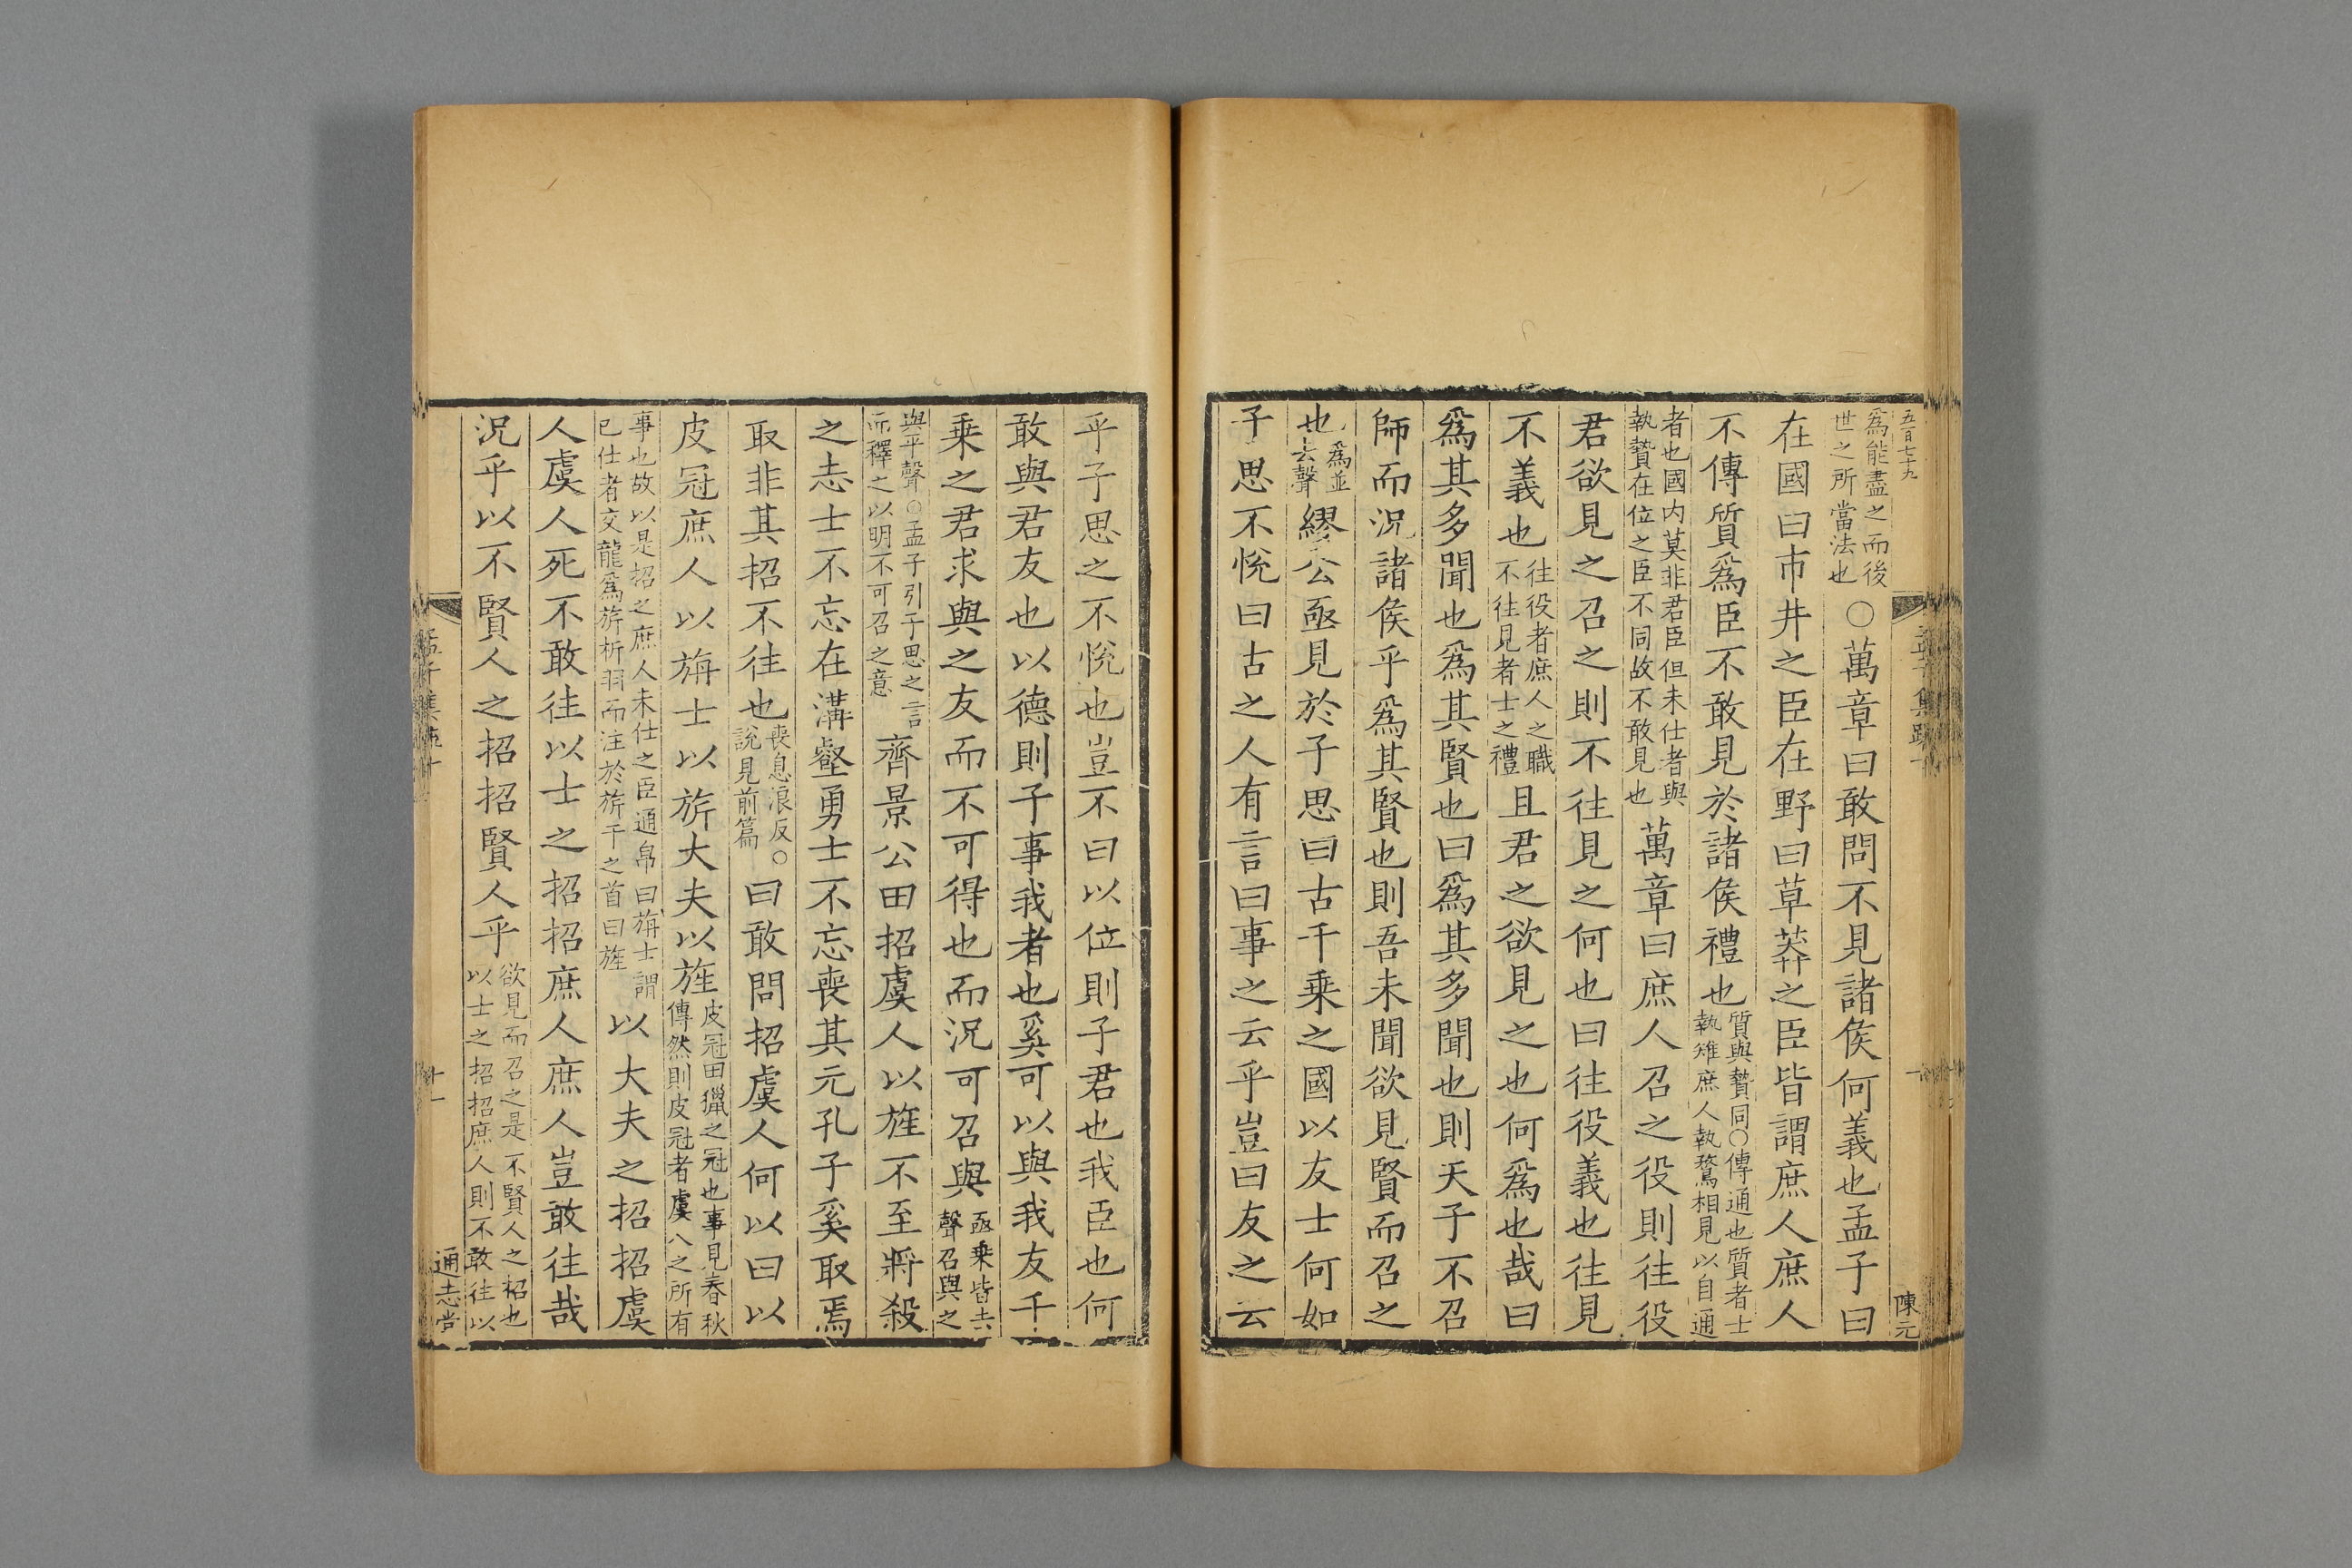 五百七十九
爲能盡之而後
世之所當法也
〇萬章曰敢問不見諸侯何義也孟子曰
在國曰市井之臣在野曰草莽之臣皆謂庶人庶人
不傳質爲臣不敢見於諸侯禮也
質與贄同〇傳通也質者士
執雉庶人執鶩相見以自通
者也國内莫非君臣但未仕者與
執贄在位之臣不同故不敢見也
萬章曰庶人召之役則往役
君欲見之召之則不往見之何也曰往役義也往見
不義也
往役者庶人之職
不往見者士之禮
且君之欲見之也何爲也哉曰
爲其多聞也爲其賢也曰爲其多聞也則天子不召
師而況諸侯乎爲其賢也則吾未聞欲見賢而召之
也
爲並
去聲
繆公亟見於子思曰古千乗之國以友士何如
子思不悅曰古之人有言曰事之云乎豈曰友之云
陳元
乎子思之不悅也豈不曰以位則子君也我臣也何
敢與君友也以德則子事我者也奚可以與我友千
乗之君求與之友而不可得也而況可召與
亟乗皆去
聲召與之
與平聲〇孟子引子思之言
而釋之以明不可召之意
齊景公田招虞人以旌不至將殺
之志士不忘在溝壑勇士不忘喪其元孔子奚取焉
取非其招不往也
喪息浪反〇
說見前篇
曰敢問招虞人何以曰以
皮冠庶人以旃士以旂大夫以旌
皮冠田獵之冠也事見春秋
傳然則皮冠者虞人之所有
事也故以是招之庶人未仕之臣通帛曰旃士謂
已仕者交龍爲旂析羽而注於旂干之首曰旌
以大夫之招招虞
人虞人死不敢往以士之招招庶人庶人豈敢往哉
況乎以不賢人之招招賢人乎
欲見而召之是不賢人之招也
以士之招招庶人則不敢往以
十一
通志堂